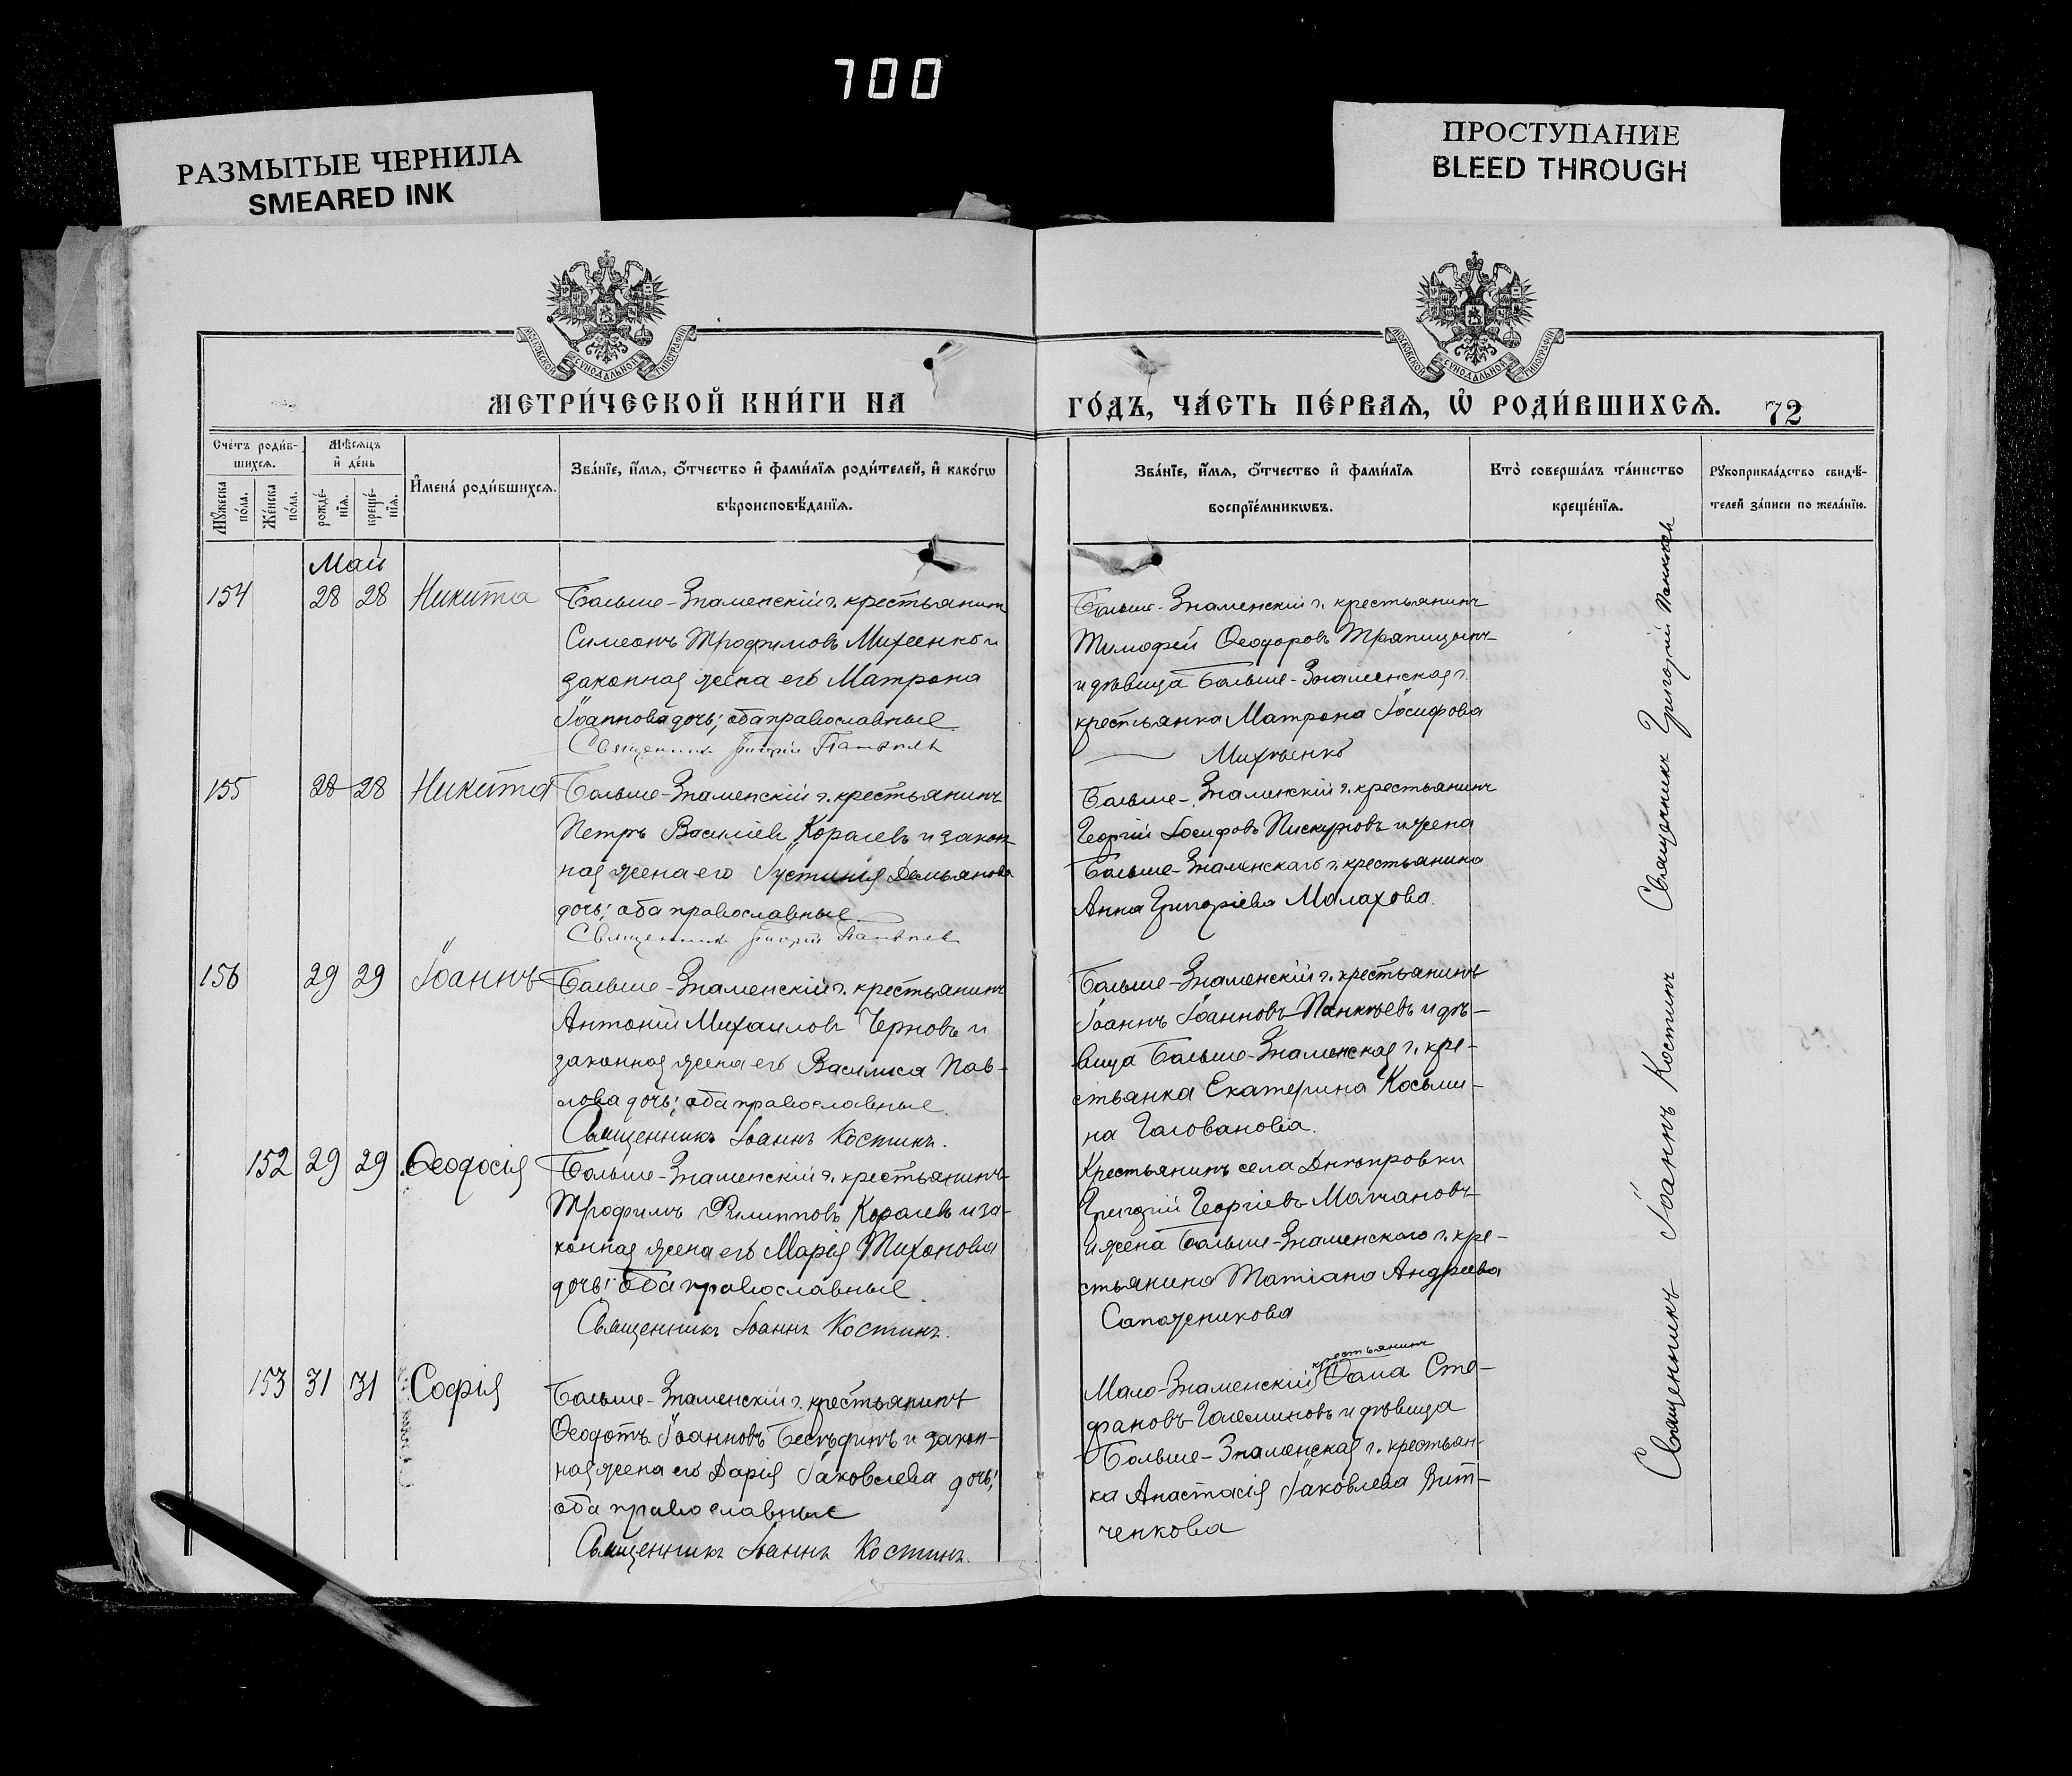 700
РАЗМЫТЫЕ ЧЕРНИЛА
SMEARED INK
ПРОСТУПАНИЕ
BLEED THROUGH
МОСКОВСКОЙ СѴНОДАЛЬНОЙ ТИПОГРАФІИ
МОСКОВСКОЙ СѴНОДАЛЬНОЙ ТИПОГРАФІИ
МЕТРИ́ЧЕСКОЙ КНИ́ГИ НА
ГО́ДЪ, ЧА́СТЬ ПЕ́РВАѦ, Ѽ РОДИ́ВШИХСѦ.
72
Сче́тъ роди́в-
шихсѧ.
Мѣ́сѧцъ
и҆ де́нь
Мꙋ́жеска по́ла.
Же́нска по́ла.
рожде́-
нїѧ.
креще́-
нїѧ.
И҆мена̀ роди́вшихсѧ.
Зва́нїе, и҆́мѧ, ѻ҆́тчество и҆ фами́лїѧ роди́телей, и҆ како́гѡ
вѣроисповѣ́данїѧ.
Зва́нїе, и҆́мѧ, ѻ҆́тчество и҆ фами́лїѧ
воспрїе́мникѡвъ.
Кто̀ соверша́лъ та́инство
креще́нїѧ.
Рꙋкоприкла́дство свидѣ́-
телей за́писи по жела́нїю.
Май
154 28 28 Никита
Больше-Знаменскій г. крестьянинъ
Симеонъ Трофимовъ Михеенко и
законная жена его Матрона
Іоаннова дочь; оба православные
Священникъ Григорій
Больше-Знаменскій г. крестьянинъ
Тимофей Ѳеодоровъ Тряпицынъ
и дѣвица Больше-Знаменская г.
крестьянка Матрона Іосифова
Михѣенко
155 28 28 Никита
Больше-Знаменскій г. крестьянинъ
Петръ Василіевъ Королевъ и закон-
ная жена его Іустинія Демьянова
дочь; оба православные
Священникъ Григорій
Больше-Знаменскій г. крестьянинъ
Георгій Іосифовъ Пискуновъ и жена
Больше-Знаменскаго г. крестьянина
Анна Григоріева Малахова.
Священникъ Григорій
156 29 29 Іоаннъ
Больше-Знаменскій г. крестьянинъ
Антоній Михаиловъ Черновъ и
законная жена его Василиса Пав-
лова дочь; оба православные.
Священникъ Іоаннъ Костинъ.
Больше-Знаменскій г. крестьянинъ
Іоаннъ Іоанновъ Панкѣевъ и дѣ-
вица Больше-Знаменская г. кре-
стьянка Екатерина Косьми-
на Голованова.
152 29 29 Ѳеодосія
Больше-Знаменскій г. крестьянинъ
Трофимъ Филипповъ Королевъ и за-
конная жена его Марія Тихонова
дочь; оба православные.
Священникъ Іоаннъ Костинъ.
Крестьянинъ села Днѣпровки
Григорій Георгіевъ Молчановъ
и жена Больше-Знаменского г. кре-
стьянина Татіана Андреева
Сапожникова
153 31 31 Софія
Больше-Знаменскій г. крестьянинъ
Ѳеодотъ Іоанновъ и закон-
ная жена его Дарія Іаковлева дочь;
оба православные
Священникъ Іоаннъ Костинъ.
крестьянинъ
Мало-Знаменскій Ѳома Сте-
фановъ и дѣвица
Больше-Знаменская г. крестьян-
ка Анастасія Іаковлева Вит-
ченкова
Священникъ Іоаннъ Костинъ